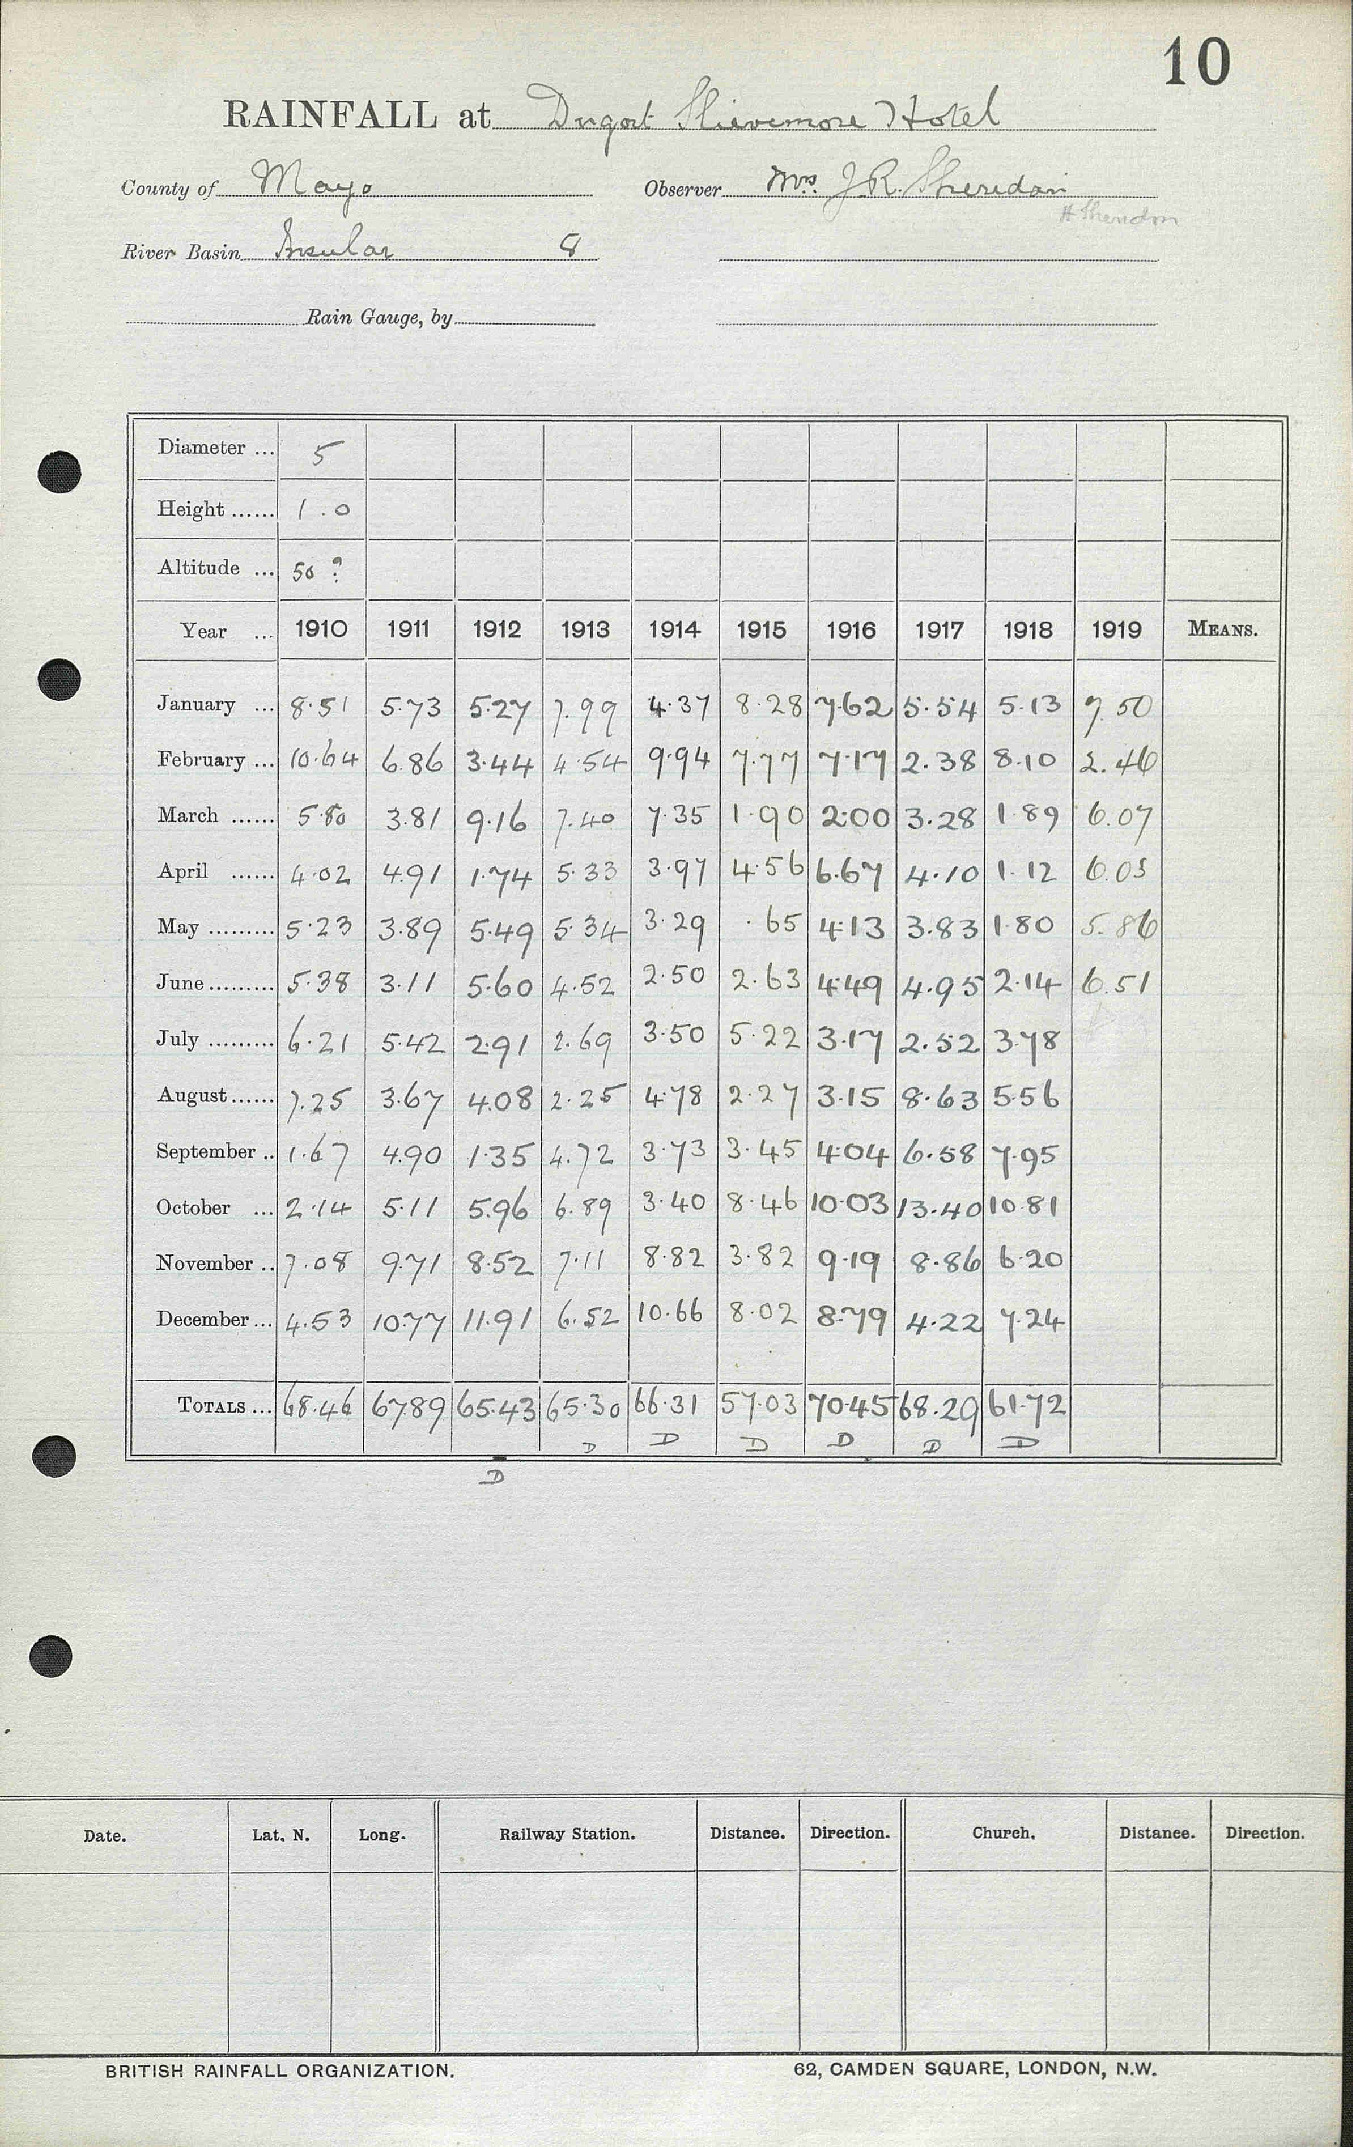 10
RAINFALL at Dugort Slievemore Hotel
County of Mayo Observer Mrs. J R. Sheridan
H Sheridan
River Basin Insular 8
Rain Gauge, by
Diameter ... 5
Height ...... 1.0
Altitude ... 50 ?
Year ... 1910 1911 1912 1913 1914 1915 1916 1917 1918 1919 MEANS.
January ... 8.51 5.73 5.27 7.99 4.37 8.28 7.62 5.54 5.13 7.50
February ... 10.64 6.86 3.44 4.54 9.94 7.77 7.17 2.38 8.10 2.46
March ...... 5.80 3.81 9.16 7.40 7.35 1.90 2.00 3.28 1.89 6.07
April ...... 4.02 4.91 1.74 5.33 3.97 4.56 6.67 4.10 1.12 6.03
May ......... 5.23 3.89 5.49 5.34 3.29 .65 4.13 3.83 1.80 5.86
June ......... 5.38 3.11 5.60 4.52 2.50 2.63 4.49 4.95 2.14 6.51
July ......... 6.21 5.42 2.91 2.69 3.50 5.22 3.17 2.52 3.78
August ...... 7.25 3.67 4.08 2.25 4.78 2.27 3.15 8.63 5.56
September .. 1.67 4.90 1.35 4.72 3.73 3.45 4.04 6.58 7.95
October ... 2.14 5.11 5.96 6.89 3.40 8.46 10.03 13.40 10.81
November .. 7.08 9.71 8.52 7.11 8.82 3.82 9.19 8.86 6.20
December ... 4.53 10.77 11.91 6.52 10.66 8.02 8.79 4.22 7.24
TOTALS ... 68.46 67.89 65.43 65.30 66.31 57.03 70.45 68.29 61.72
D D D D D D
D
Date. Lat. N. Long. Railway Station. Distance. Direction. Church. Distance. Direction.
BRITISH RAINFALL ORGANIZATION. 62, CAMDEN SQUARE, LONDON, N.W.